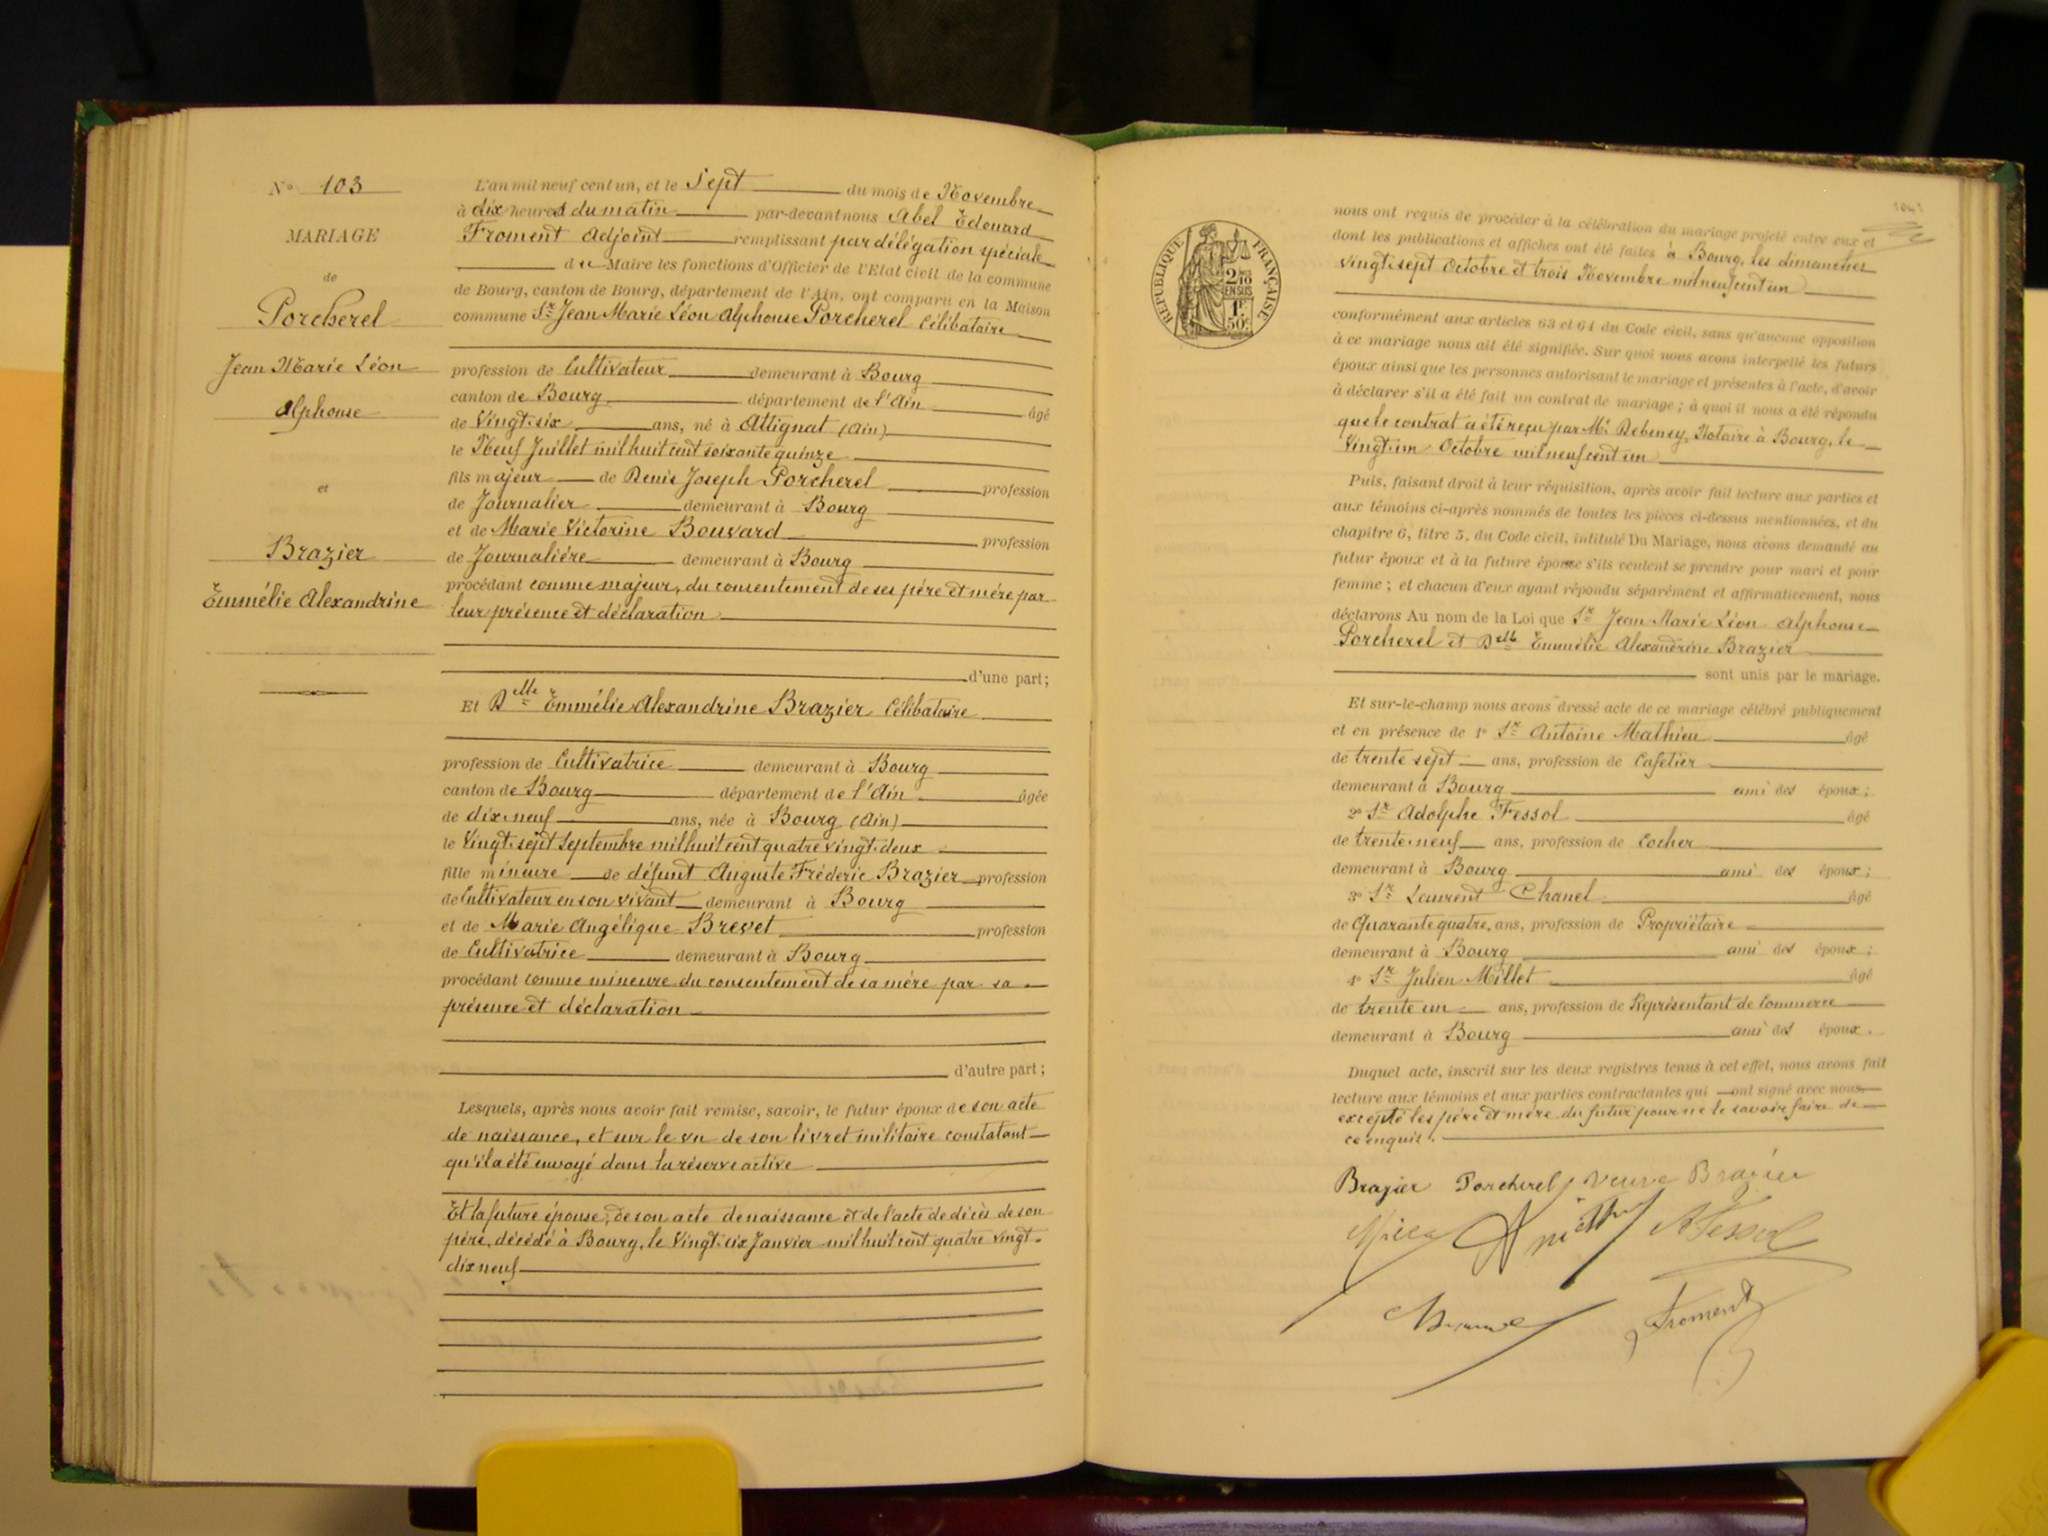 N° 103
MARIAGE
de
Porcherel
Jean Marie Léon
Alphonse
et
Brazier
Emmélie Alexandrine
L'an mil neuf cent un, et le Sept du mois de Novembre
à dix heures du matin par-devant nous Abel Edouard
Froment Adjoint remplissant par délégation spéciale
du Maire les fonctions d'Officier de l'Etat civil de la commune
de Bourg, canton de Bourg, département de l'Ain, ont comparu en la Maison
commune Sr Jean Marie Léon Alphonse Porcherel Célibataire
profession de Cultivateur demeurant à Bourg
canton de Bourg département de l'Ain âgé
de Vingt-six ans, né à Attignat (Ain)
le Neuf Juillet mil huit cent soixante quinze
fils majeur de Denis Joseph Porcherel profession
de Journalier demeurant à Bourg
et de Marie Victorine Bouvard profession
de Journalière demeurant à Bourg
procédant comme majeur, du consentement de ses père et mère par
leur présence et déclaration
d'une part;
Et Delle Emmélie Alexandrine Brazier Célibataire
profession de Cultivatrice demeurant à Bourg
canton de Bourg département de l'Ain âgée
de dix-neuf ans, née à Bourg (Ain)
le Vingt-sept Septembre mil huit cent quatre vingt-deux
fille mineure de défunt Auguste Fréderic Brazier profession
de Cultivateur en son vivant demeurant à Bourg
et de Marie Angélique Brevet profession
de Cultivatrice demeurant à Bourg
procédant comme mineure du consentement de sa mère par sa
présence et déclaration
d'autre part;
Lesquels, après nous avoir fait remise, savoir, le futur époux de son acte
de naissance, et sur le vu de son livret militaire constatant
qu'il a été envoyé dans la réserve active
Et la future épouse, de son acte de naissance et de l'acte de décès de son
père, décédé à Bourg, le Vingt-six Janvier mil huit cent quatre vingt-
dix neuf
RÉPUBLIQUE FRANÇAISE
2/10 EN SUS
1F. 50c
nous ont requis de procéder à la célébration du mariage projeté entre eux et
dont les publications et affiches ont été faites à Bourg, les dimanches
vingt-sept Octobre et trois Novembre mil neuf cent un
conformément aux articles 63 et 64 du Code civil, sans qu'aucune opposition
à ce mariage nous ait été signifiée. Sur quoi nous avons interpellé les futurs
époux ainsi que les personnes autorisant le mariage et présentes à l'acte, d'avoir
à déclarer s'il a été fait un contrat de mariage; à quoi il nous a été répondu
que le contrat a été reçu par Me Notaire à Bourg, le
Vingt-un Octobre mil neuf cent un
Puis, faisant droit à leur réquisition, après avoir fait lecture aux parties et
aux témoins ci-après nommés de toutes les pièces ci-dessus mentionnées, et du
chapitre 6, titre 5, du Code civil, intitulé Du Mariage, nous avons demandé au
futur époux et à la future épouse s'ils veulent se prendre pour mari et pour
femme; et chacun d'eux ayant répondu séparément et affirmativement, nous
déclarons Au nom de la Loi que Sr Jean Marie Léon Alphonse
Porcherel et Delle Emmélie Alexandrine Brazier
sont unis par le mariage.
Et sur-le-champ nous avons dressé acte de ce mariage célébré publiquement
et en présence de 1° Sr Antoine Mathieu âgé
de trente sept ans, profession de Cafetier
demeurant à Bourg ami des époux;
2° Sr Adolphe Fessol âgé
de trente-neuf ans, profession de Cocher
demeurant à Bourg ami des époux;
3° Sr Laurent Chanel âgé
de Quarante quatre, ans, profession de Propriétaire
demeurant à Bourg ami des époux;
4° Sr Julien Millet âgé
de trente un ans, profession de Représentant de Commerce
demeurant à Bourg ami des époux.
Duquel acte, inscrit sur les deux registres tenus à cet effet, nous avons fait
lecture aux témoins et aux parties contractantes qui ont signé avec nous
excepté les père et mère du futur pour ne le savoir faire de
ce enquis.
Brazier Porcherel Veuve Brazier
A Fessol
Froment